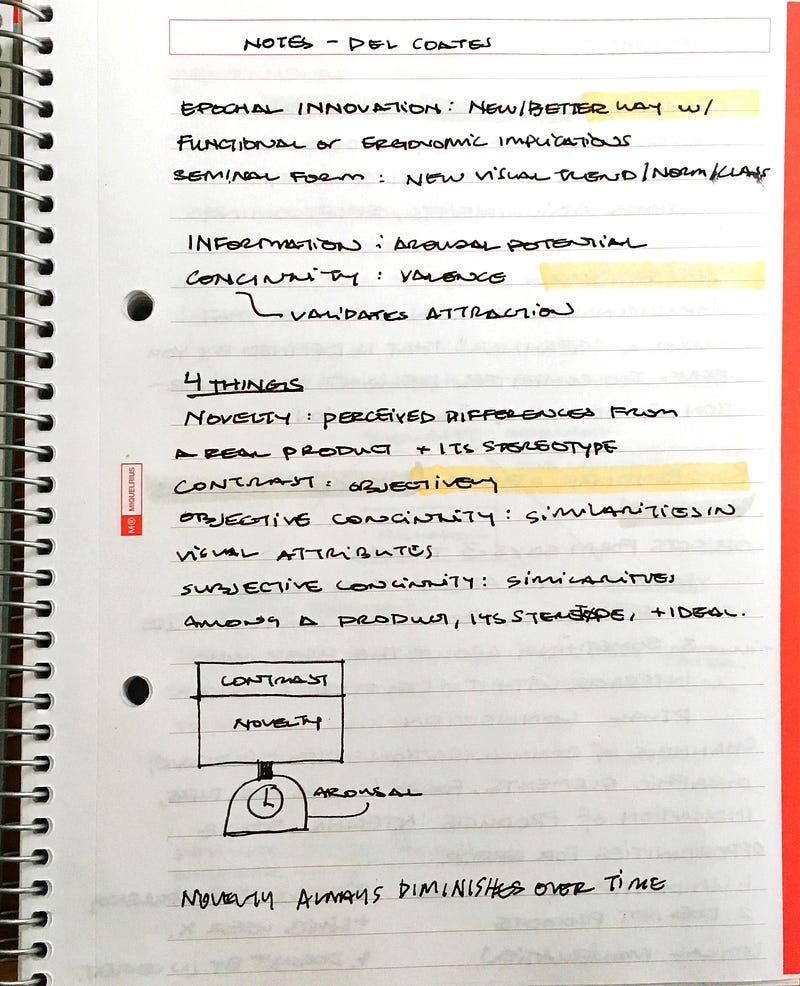 NOTES - DEL COATES
EPOCHAL INNOVATION: NEW/BETTER WAY W/
FUNCTIONAL or ERGONOMIC IMPLICATIONS
SEMINAL FORM: NEW VISUAL TREND/NORM/CLASS
INFORMATION: AROUSAL POTENTIAL
CONCINNITY: VALENCE
VALIDATES ATTRACTION
4 THINGS
NOVELTY: PERCEIVED DIFFERENCES FROM
A REAL PRODUCT + ITS STEREOTYPE
CONTRAST: OBJECTIVELY
OBJECTIVE CONCINNITY: SIMILARITIES IN
VISUAL ATTRIBUTES
SUBJECTIVE CONCINNITY: SIMILARITIES
AMONG A PRODUCT, ITS STEREOTYPE, + IDEAL.
M® MIQUELRIUS
CONTRAST
NOVELTY
AROUSAL
NOVELTY ALWAYS DIMINISHES OVER TIME